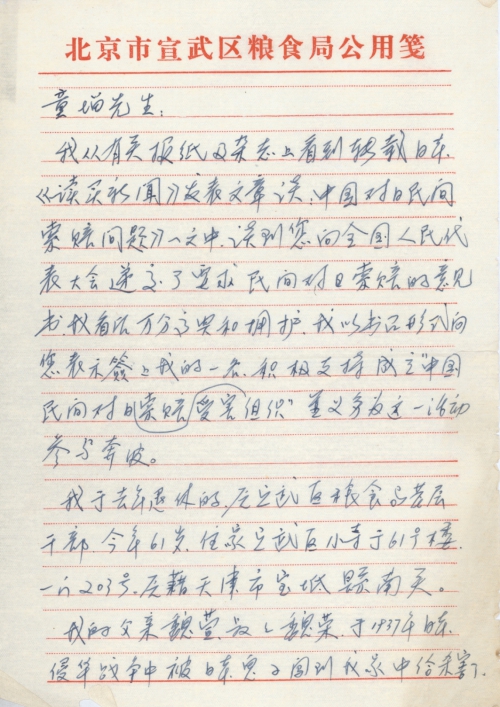 北京市宣武区粮食局公用笺
童增先生:
我从有关报纸及杂志上看到转载日本
《读卖新闻》发表文章谈:中国对日民间
索赔问题》一文中,谈到您向全国人民代
表大会递交了要求民间对日索赔的意见
书,我看后万分高兴和拥护,我以书面形式向
您表示签上我的一名,积极支持成立"中国
民间对日索赔受害组织"并义务为这一活动
参与奔波。
我于去年退休的,宣武区粮食局基层
干部,今年61岁,住家宣武区小寺于61号楼
一门203号,原籍天津市宝坻县南关。
我的父亲魏萱,叔叔魏荣,于1937年日本
侵华战争中被日本鬼子闯到我家中给杀害了,